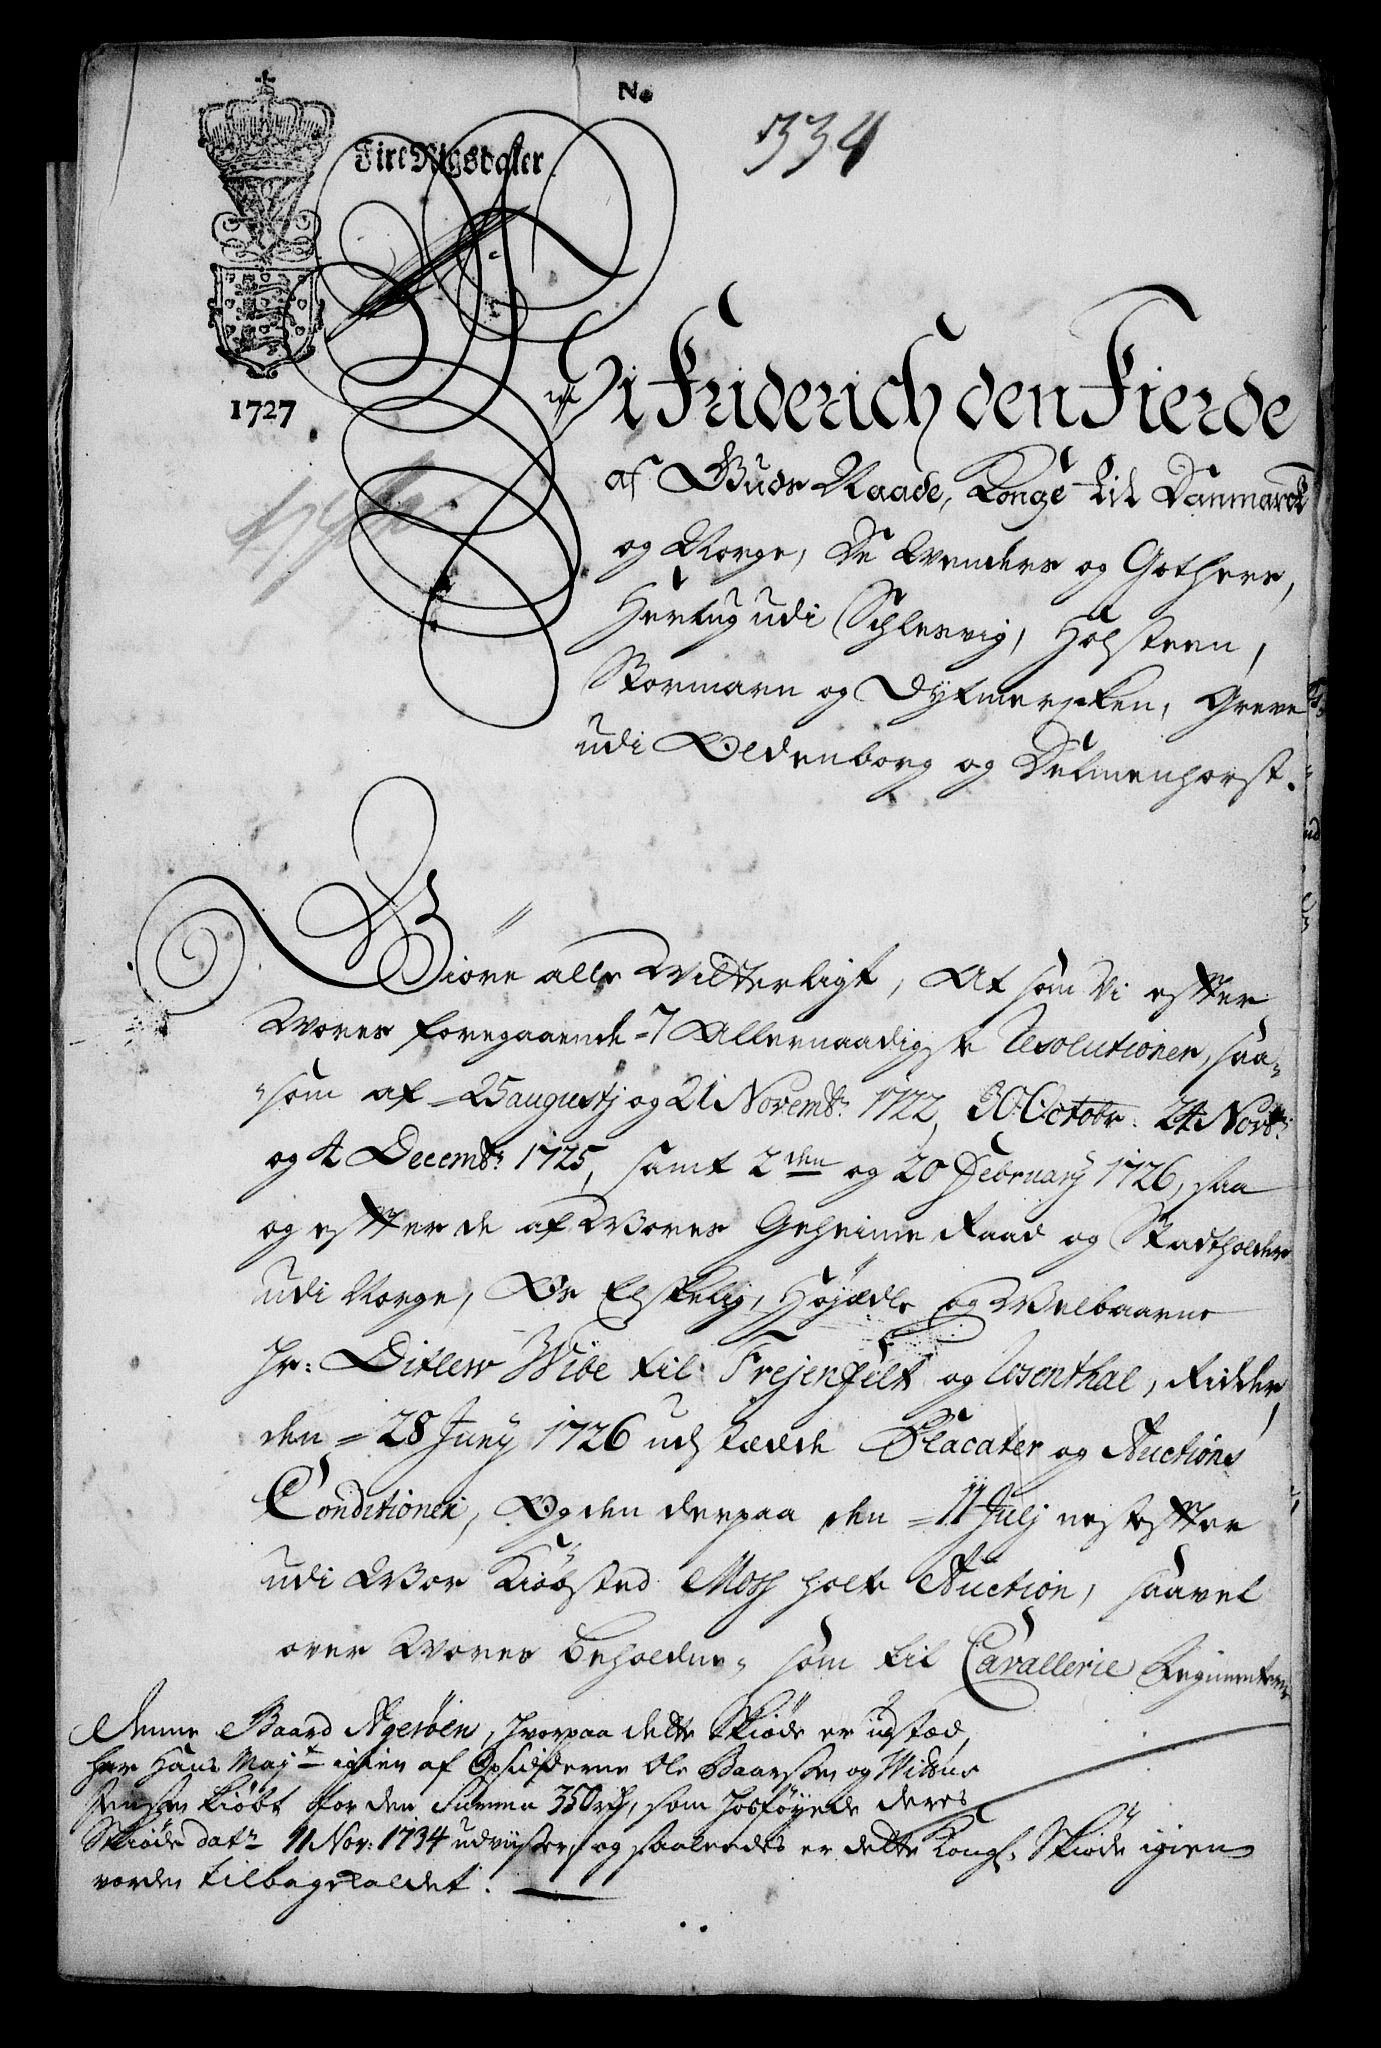 No
334
Fire Rigsdaler
1727
Vi Friderich den Fierde
af Guds Naade, Konge til Danmarck
og Norge, De Wenders og Gothers,
Hertug udi Schlesvig, Holsteen,
Stormarn og Dytmersken, Greve
udi Oldenborg og Delmenhorst.
Giøre alle Witterligt, At som Vi efter
Wores foregaaende 7 Allernaadigste Resolutioner, saa-
som af 25 augustj og 21 Novembr: 1722, 30 Octobr. 24 Novbr:
og 4 Decembr: 1725, samt 2den og 20 February 1726, saa
og efter de af Wores Geheime Raad og Stadtholder
udi Norge, Os Elskelig, Høyædle og Welbaarne
Hr: Ditlew Wibe til Frejenfelt og Rosenthal, Ridder,
den 28 Juny 1726 udstædde Placater og Auctions
Conditioner, Og den derpaa den 11 Julj nestefter
udi Wor Kiøbsted Moss holte Auction, saavel
over Wores beholdne, som til Cavallerie Regimenterne
Denne Gaard Agerøen, hvorpaa dette Skiøde er udstæd,
har Hans Mayt igien af Opsidderne Ole Baarsen og
kiøbt for den Summa 350 rd, som hosføyede deres
Skiøde datr 11 Nov: 1734 udviiser, og saaledes er dette Kongl: Skiøde igien
vorden tilbagekaldet.